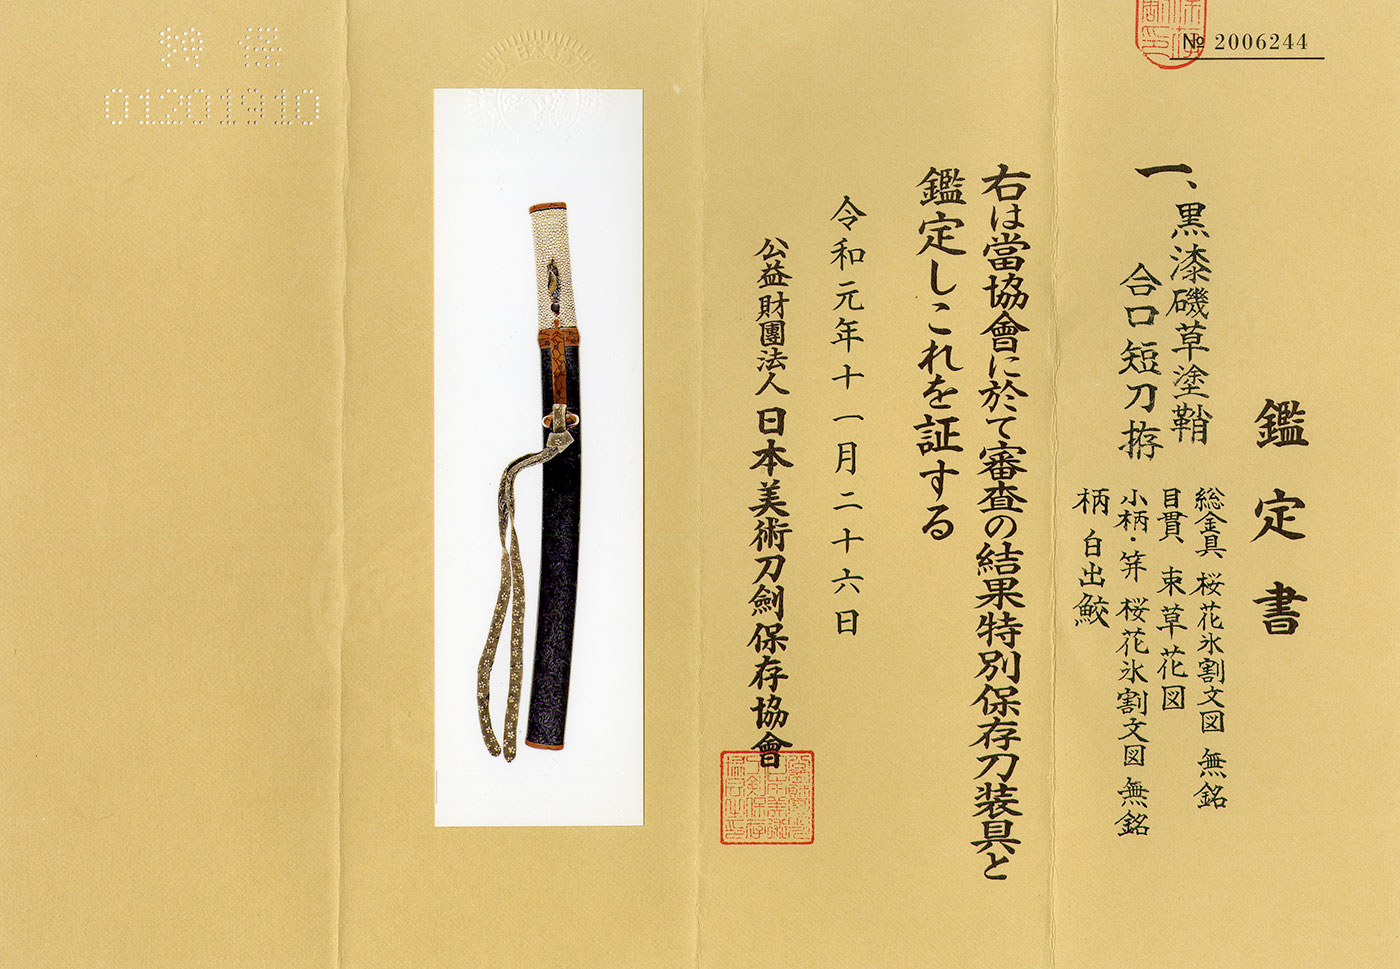 № 2006244
鑑定書
一、黒漆磯草塗鞘
合口短刀拵
総金具 桜花氷割文図 無銘
目貫 束草花図
小柄・笄 桜花氷割文図 無銘
柄 白出鮫
右は當協會に於て審査の結果特別保存刀装具と
鑑定しこれを証する
令和元年十一月二十六日
公益財團法人 日本美術刀劍保存協會
01201910